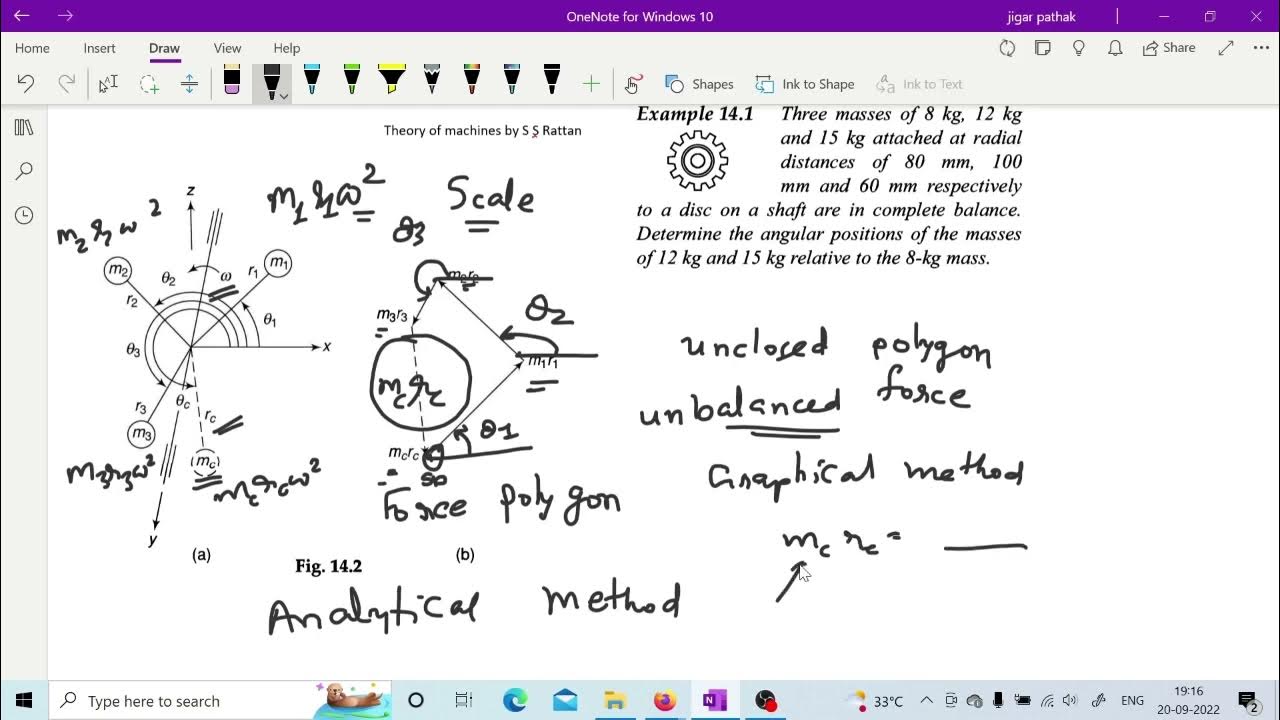 OneNote for Windows 10
jigar pathak
Home Insert Draw View Help
Share
Shapes
Ink to Shape
Ink to Text
Theory of machines by S S Rattan
Example 14.1 Three masses of 8 kg, 12 kg
and 15 kg attached at radial
distances of 80 mm, 100
mm and 60 mm respectively
to a disc on a shaft are in complete balance.
Determine the angular positions of the masses
of 12 kg and 15 kg relative to the 8-kg mass.
m₁r₁ω²
Scale
m₂r₂ω²
z
m₂
θ₂
ω
r₁
m₁
r₂
θ₁
θ₃
x
r₃
θc
rc
m₃
(mc)
m₃r₃ω²
mcrcω²
y
(a)
θ3
m₂r₂
m₃r₃
θ2
m₁r₁
mcrc
θ1
mcrc
Force polygon
(b)
Fig. 14.2
unclosed polygon
unbalanced force
Graphical method
mc rc =
Analytical method
Type here to search
33°C
ENG
19:16
20-09-2022
2